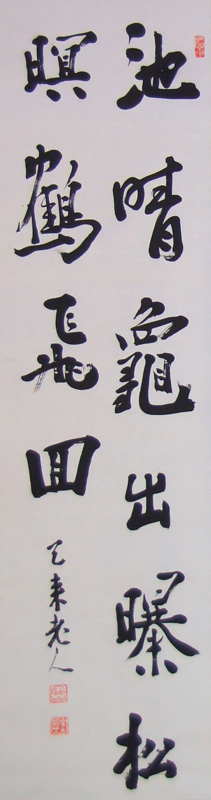 池晴龜出曝松
暝鶴飛回
天来老人